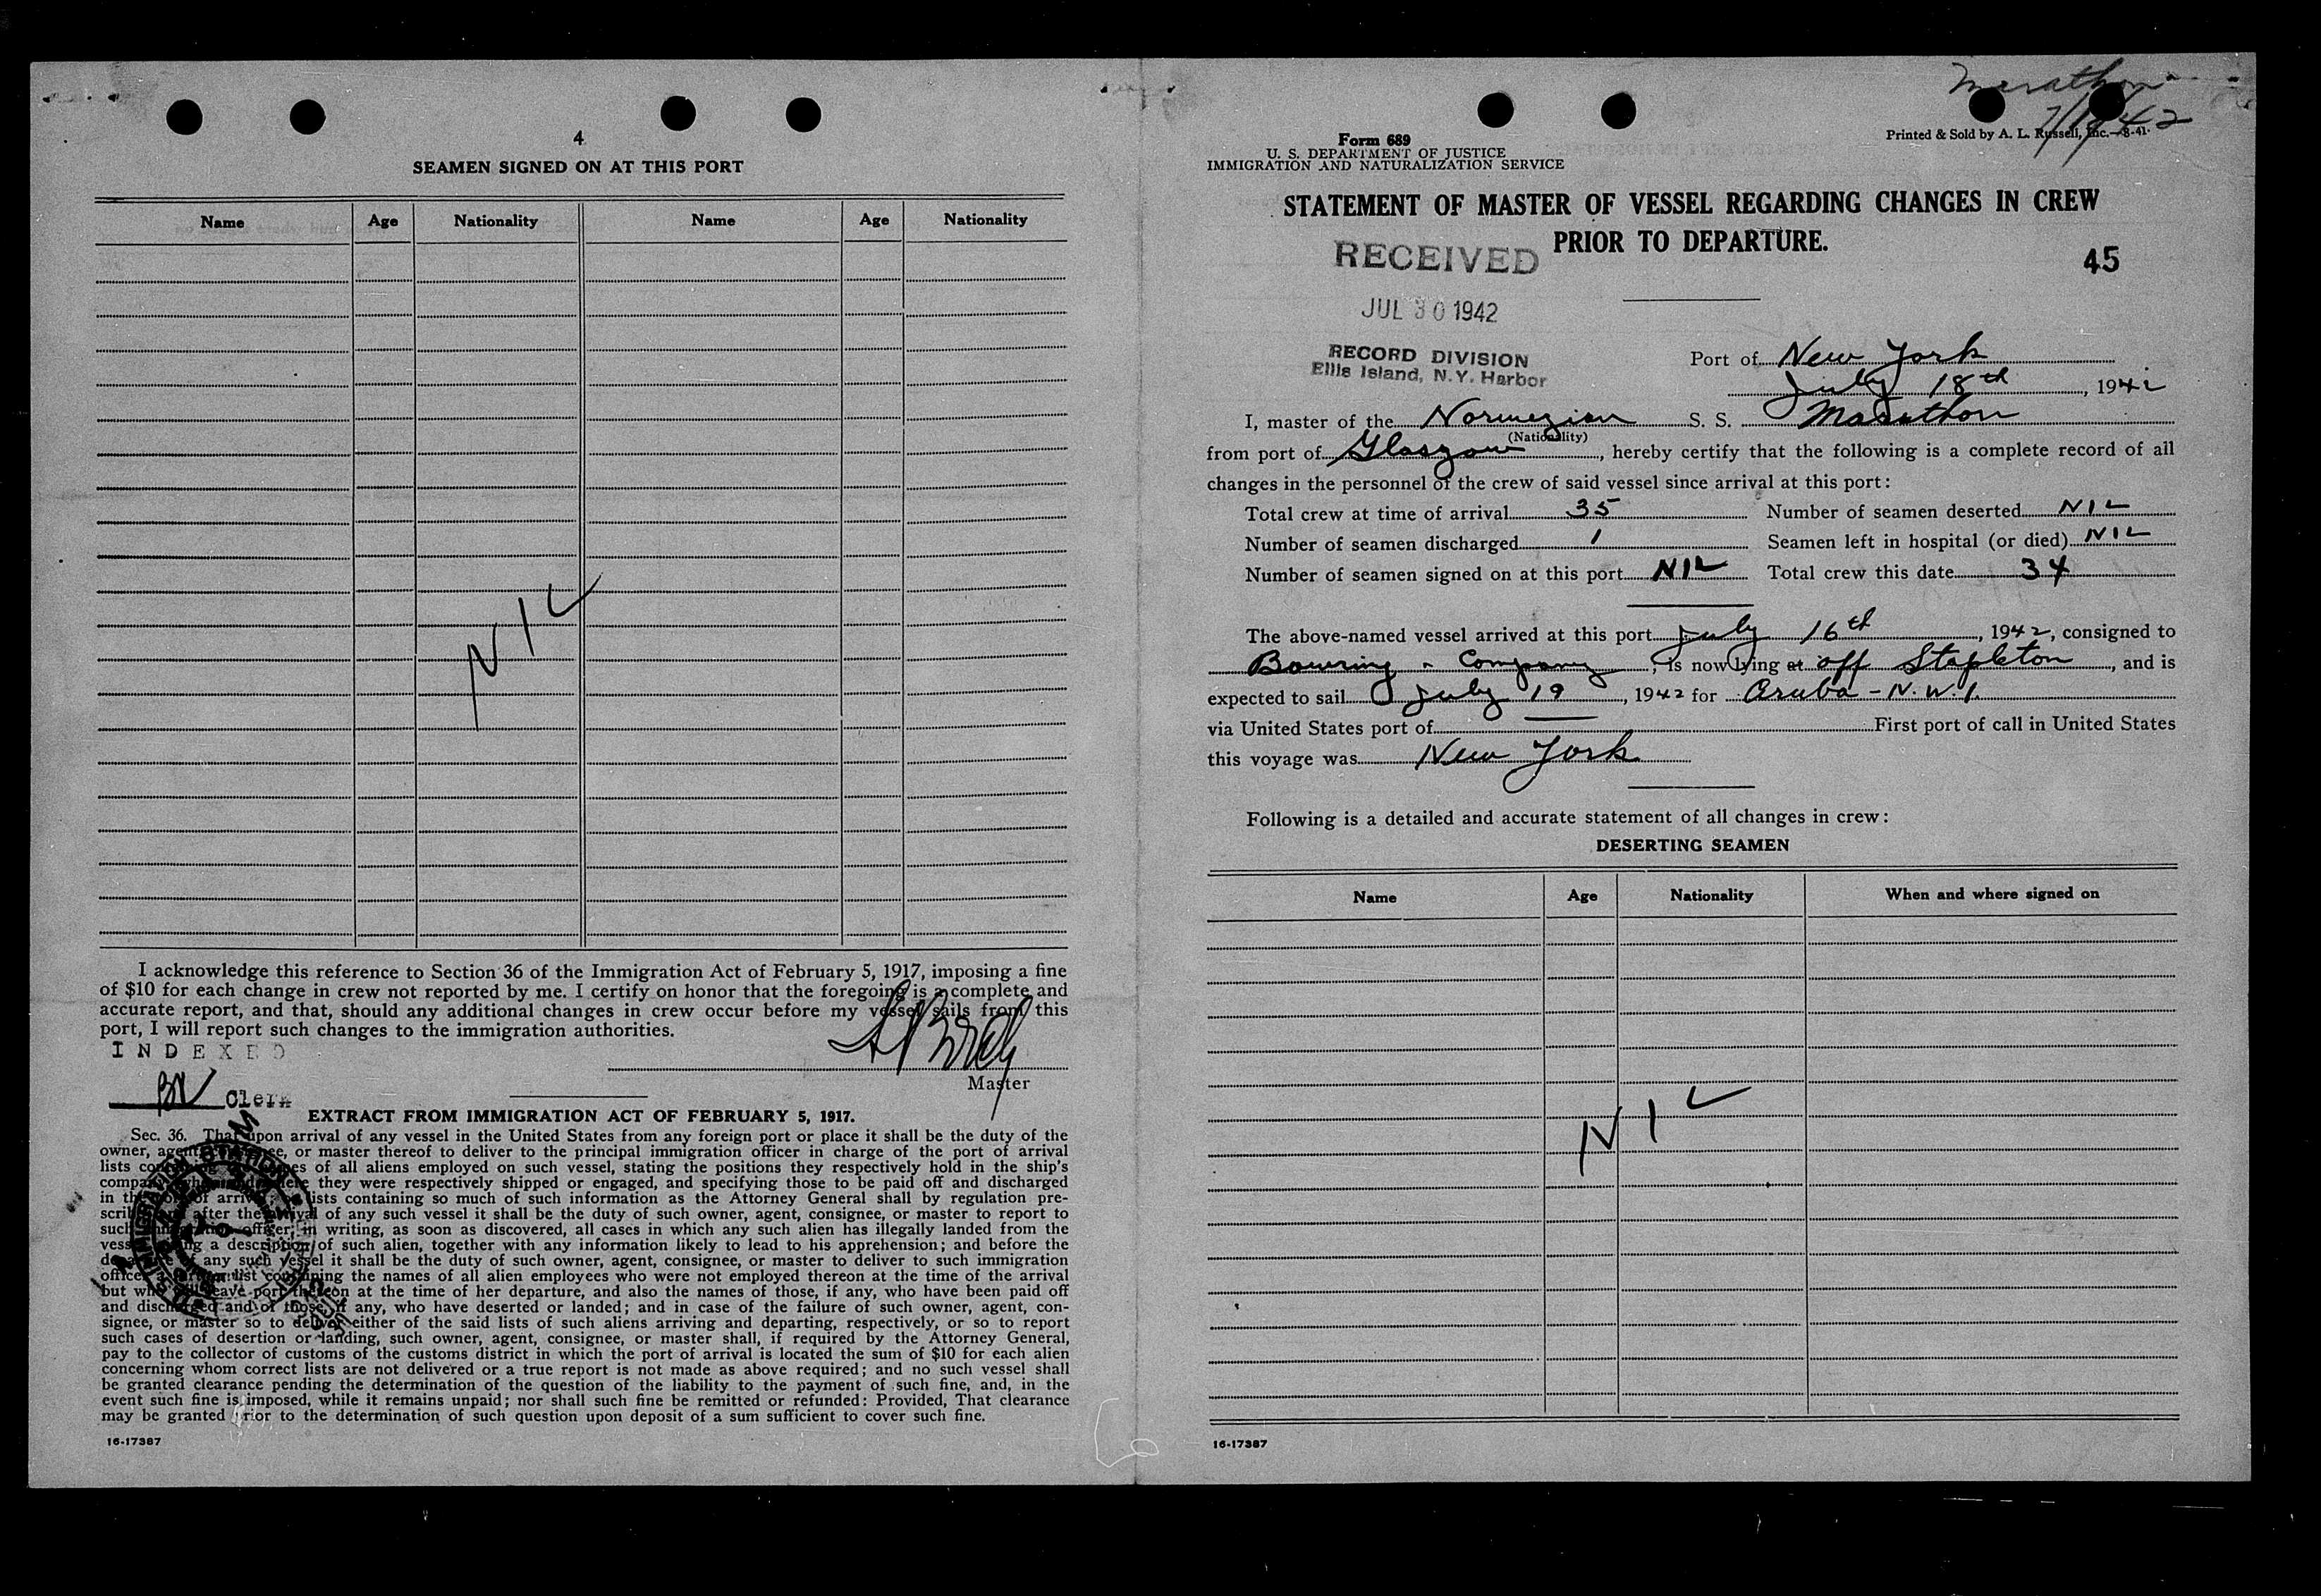 4
SEAMEN SIGNED ON AT THIS PORT
Name Age Nationality Name Age Nationality
NIL
I acknowledge this reference to Section 36 of the Immigration Act of February 5, 1917, imposing a fine
of $10 for each change in crew not reported by me. I certify on honor that the foregoing is a complete and
accurate report, and that, should any additional changes in crew occur before my vessel sails from this
port, I will report such changes to the immigration authorities.
INDEXED
Master
Clerk
EXTRACT FROM IMMIGRATION ACT OF FEBRUARY 5, 1917.
Sec. 36. That upon arrival of any vessel in the United States from any foreign port or place it shall be the duty of the
owner, agent, consignee, or master thereof to deliver to the principal immigration officer in charge of the port of arrival
lists containing the names of all aliens employed on such vessel, stating the positions they respectively hold in the ship's
company, when and where they were respectively shipped or engaged, and specifying those to be paid off and discharged
in the port of arrival; or lists containing so much of such information as the Attorney General shall by regulation pre-
scribe; and after the arrival of any such vessel it shall be the duty of such owner, agent, consignee, or master to report to
such immigration officer, in writing, as soon as discovered, all cases in which any such alien has illegally landed from the
vessel, giving a description of such alien, together with any information likely to lead to his apprehension; and before the
departure of any such vessel it shall be the duty of such owner, agent, consignee, or master to deliver to such immigration
officer a further list containing the names of all alien employees who were not employed thereon at the time of the arrival
but who will leave port thereon at the time of her departure, and also the names of those, if any, who have been paid off
and discharged and of those, if any, who have deserted or landed; and in case of the failure of such owner, agent, con-
signee, or master so to deliver either of the said lists of such aliens arriving and departing, respectively, or so to report
such cases of desertion or landing, such owner, agent, consignee, or master shall, if required by the Attorney General,
pay to the collector of customs of the customs district in which the port of arrival is located the sum of $10 for each alien
concerning whom correct lists are not delivered or a true report is not made as above required; and no such vessel shall
be granted clearance pending the determination of the question of the liability to the payment of such fine, and, in the
event such fine is imposed, while it remains unpaid; nor shall such fine be remitted or refunded: Provided, That clearance
may be granted prior to the determination of such question upon deposit of a sum sufficient to cover such fine.
16-17387
Marathon
7/19/42
Form 689
Printed & Sold by A. L. Russell, Inc.—8-41
U. S. DEPARTMENT OF JUSTICE
IMMIGRATION AND NATURALIZATION SERVICE
STATEMENT OF MASTER OF VESSEL REGARDING CHANGES IN CREW
PRIOR TO DEPARTURE.
RECEIVED
45
JUL 30 1942
RECORD DIVISION
Ellis Island, N.Y. Harbor
Port of New York
July 18th, 1942
I, master of the Norwegian S. S. Marathon
(Nationality)
from port of Glasgow, hereby certify that the following is a complete record of all
changes in the personnel of the crew of said vessel since arrival at this port:
Total crew at time of arrival 35 Number of seamen deserted NIL
Number of seamen discharged 1 Seamen left in hospital (or died) NIL
Number of seamen signed on at this port NIL Total crew this date 34
The above-named vessel arrived at this port July 16th, 1942, consigned to
Bowring & Company, is now lying at off Stapleton, and is
expected to sail July 19, 1942 for Aruba - N.W.I.
via United States port of — First port of call in United States
this voyage was New York
Following is a detailed and accurate statement of all changes in crew:
DESERTING SEAMEN
Name Age Nationality When and where signed on
NIL
16-17387